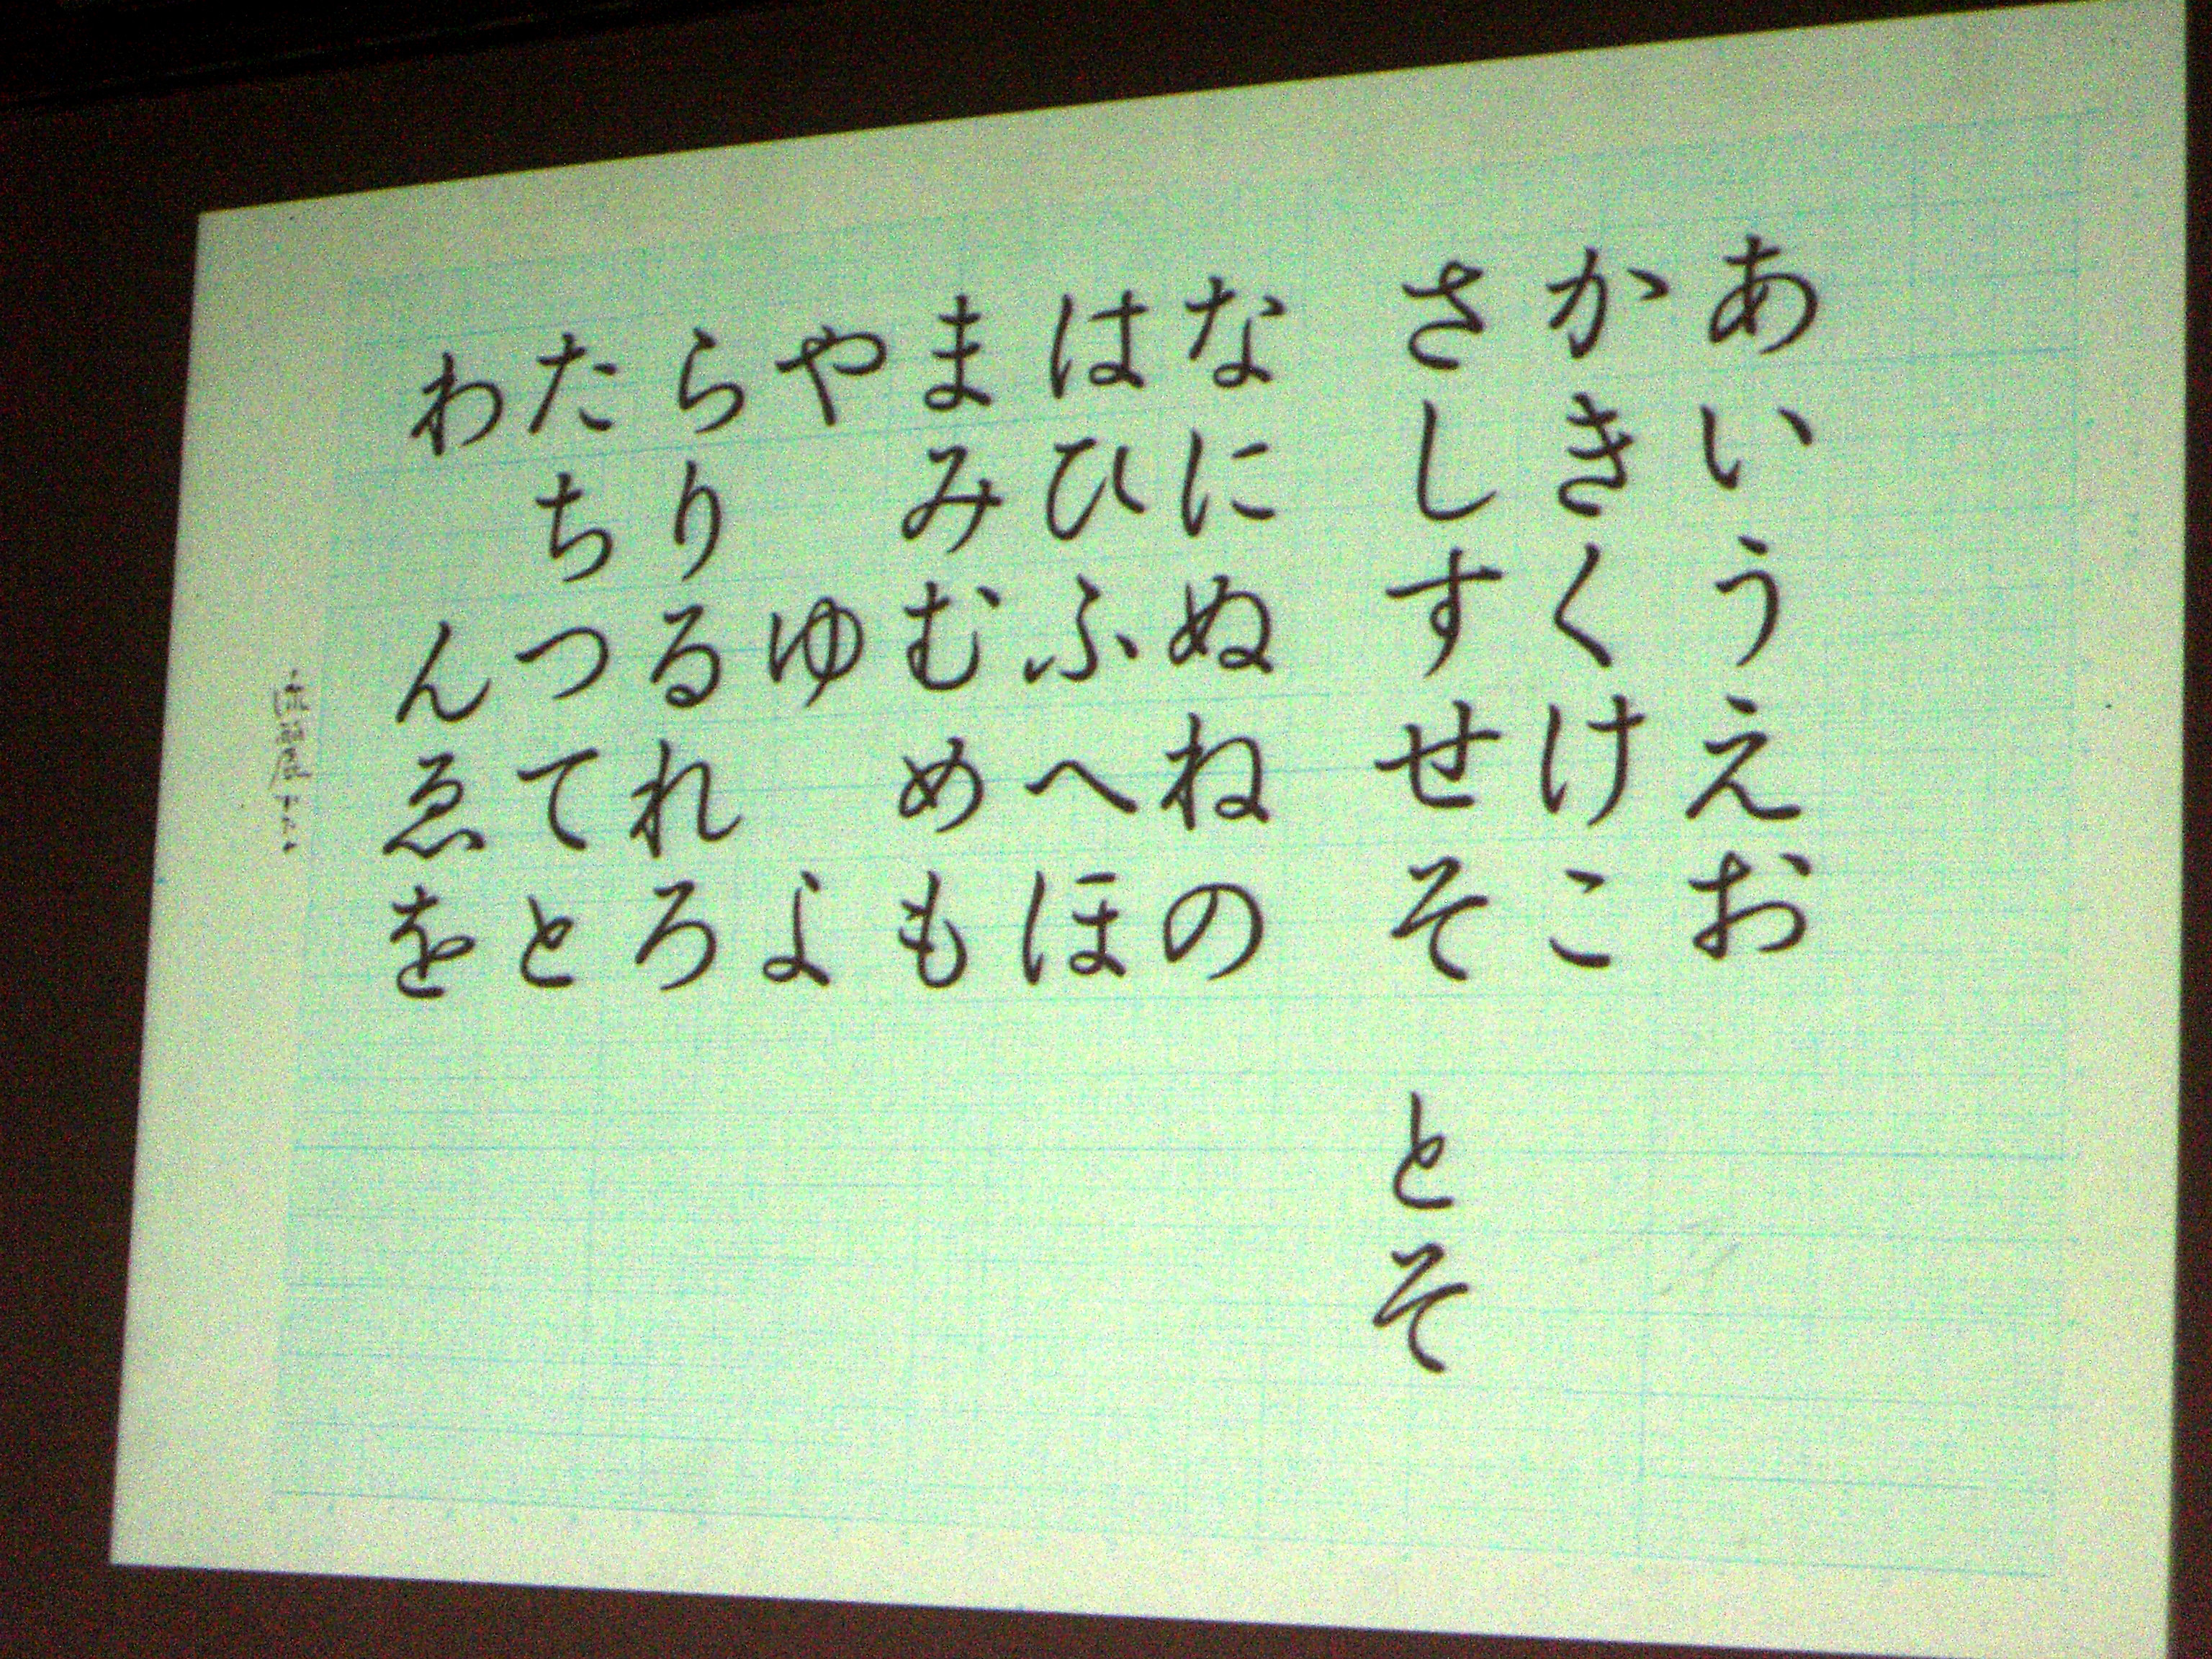 あいうえお
かきくけこ
さしすせそ　とそ
なにぬねの
はひふへほ
まみむめも
やゆよ
らりるれろ
たちつてと
わんゑを